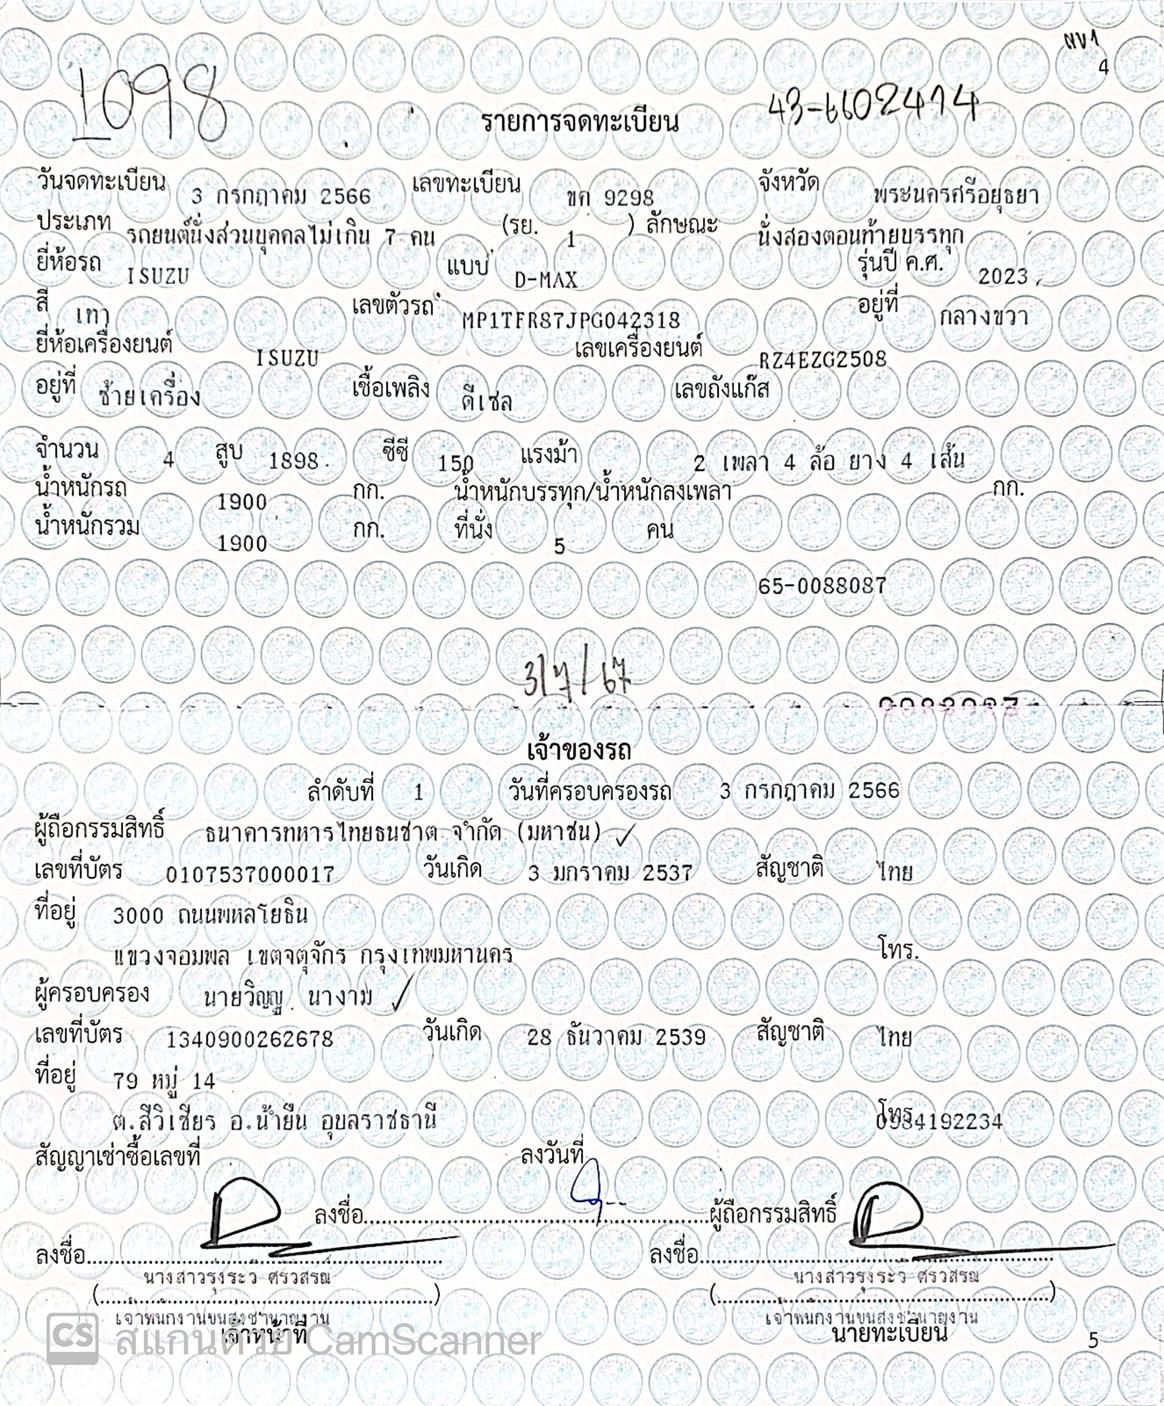 ผข1
4
1098
43-6602414
รายการจดทะเบียน
วันจดทะเบียน 3 กรกฎาคม 2566 เลขทะเบียน ขค 9298 จังหวัด พระนครศรีอยุธยา
ประเภท รถยนต์นั่งส่วนบุคคลไม่เกิน 7 คน (รย. 1 ) ลักษณะ นั่งสองตอนท้ายบรรทุก
ยี่ห้อรถ ISUZU แบบ D-MAX รุ่นปี ค.ศ. 2023
สี เทา เลขตัวรถ MP1TFR87JPG042318 อยู่ที่ กลางขวา
ยี่ห้อเครื่องยนต์ ISUZU เลขเครื่องยนต์ RZ4EZG2508
อยู่ที่ ซ้ายเครื่อง เชื้อเพลิง ดีเซล เลขถังแก๊ส
จำนวน 4 สูบ 1898 ซีซี 150 แรงม้า 2 เพลา 4 ล้อ ยาง 4 เส้น
น้ำหนักรถ 1900 กก. น้ำหนักบรรทุก/น้ำหนักลงเพลา กก.
น้ำหนักรวม 1900 กก. ที่นั่ง 5 คน
65-0088087
3/7/67
เจ้าของรถ
ลำดับที่ 1 วันที่ครอบครองรถ 3 กรกฎาคม 2566
ผู้ถือกรรมสิทธิ์ ธนาคารทหารไทยธนชาต จำกัด (มหาชน) ✓
เลขที่บัตร 0107537000017 วันเกิด 3 มกราคม 2537 สัญชาติ ไทย
ที่อยู่ 3000 ถนนพหลโยธิน
แขวงจอมพล เขตจตุจักร กรุงเทพมหานคร โทร.
ผู้ครอบครอง นายวิญญู นางาม ✓
เลขที่บัตร 1340900262678 วันเกิด 28 ธันวาคม 2539 สัญชาติ ไทย
ที่อยู่ 79 หมู่ 14
ต.สีวิเชียร อ.น้ำยืน อุบลราชธานี โทร. 0984192234
สัญญาเช่าซื้อเลขที่ ลงวันที่
ลงชื่อ ผู้ถือกรรมสิทธิ์
ลงชื่อ ลงชื่อ
นางสาวรุ่งระวี ศรีวสรณ์ นางสาวรุ่งระวี ศรีวสรณ์
( ) ( )
เจ้าพนักงานขนส่งชำนาญงาน เจ้าพนักงานขนส่งชำนาญงาน
เจ้าหน้าที่ นายทะเบียน
5
CS สแกนด้วย CamScanner